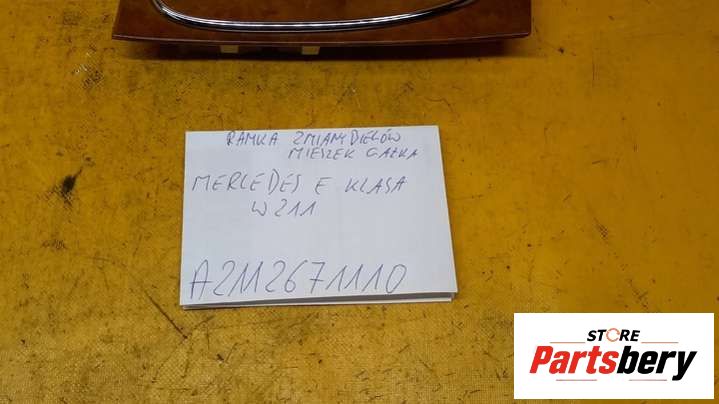 RAMKA ZMIANY BIEGÓW
MIESZEK GAŁKA
MERCEDES E KLASA
W211
A2112671110
STORE
Partsbery